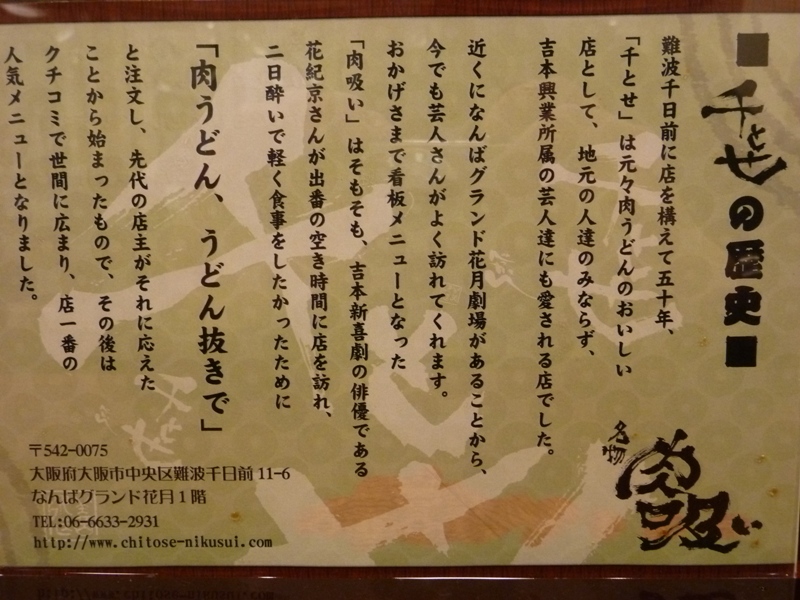 ■千とせの歴史■
難波千日前に店を構えて五十年、
「千とせ」は元々肉うどんのおいしい
店として、地元の人達のみならず、
吉本興業所属の芸人達にも愛される店でした。
近くになんばグランド花月劇場があることから、
今でも芸人さんがよく訪れてくれます。
おかげさまで看板メニューとなった
「肉吸い」はそもそも、吉本新喜劇の俳優である
花紀京さんが出番の空き時間に店を訪れ、
二日酔いで軽く食事をしたかったために
「肉うどん、うどん抜きで」
と注文し、先代の店主がそれに応えた
ことから始まったもので、その後は
クチコミで世間に広まり、店一番の
人気メニューとなりました。
名物
肉吸い
〒542-0075
大阪府大阪市中央区難波千日前11-6
なんばグランド花月1階
TEL:06-6633-2931
http://www.chitose-nikusui.com